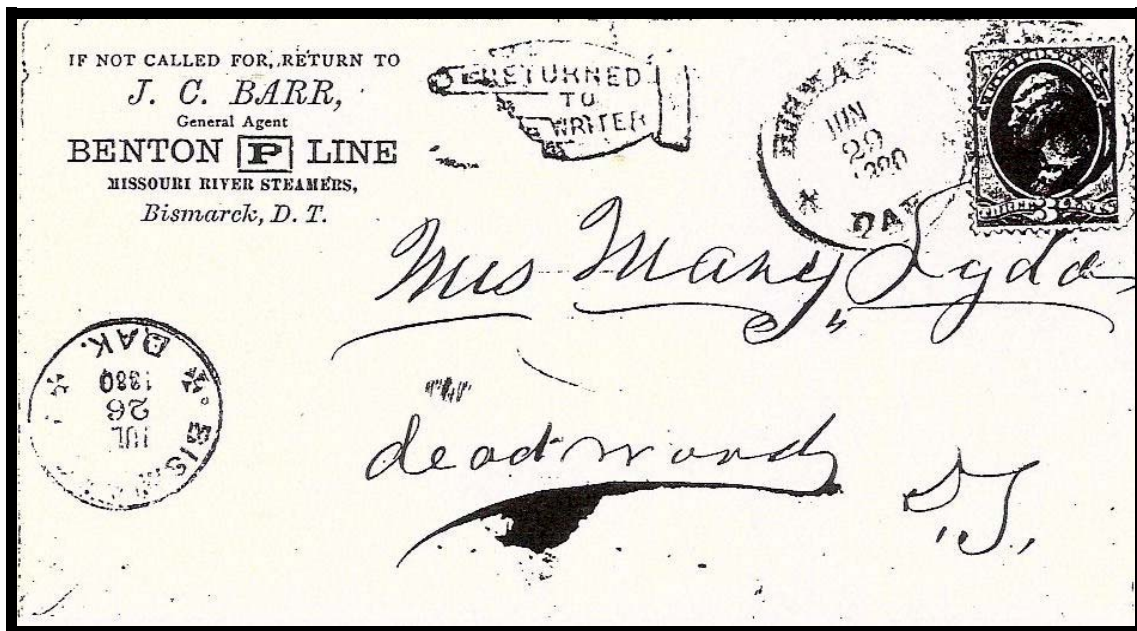 IF NOT CALLED FOR, RETURN TO
J. C. BARR,
General Agent
BENTON P LINE
MISSOURI RIVER STEAMERS,
Bismarck, D. T.
RETURNED
TO
WRITER
JUN
29
1880
DAK
THREE 3 CENTS
Mrs Mary Lyda
deadwood
D.T.
BIS
DAK.
JUL
26
1880